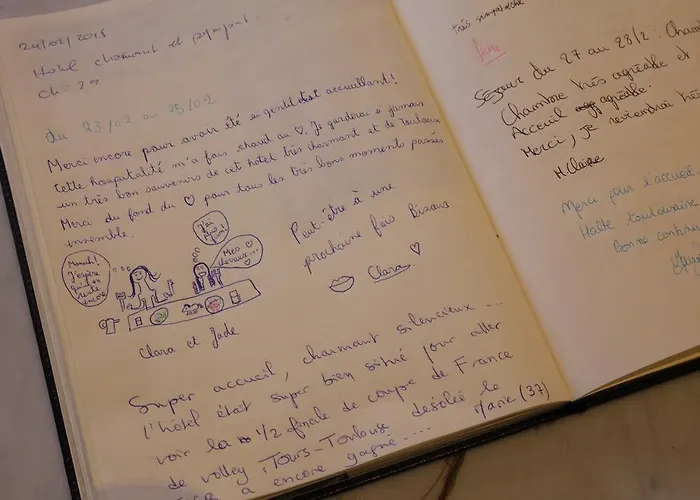 24/02/2018
Hotel charmant et sympa!
Ch: 29
du 23/02 au 25/02.
Merci encore pour avoir été si gentil et accueillant!
Cette hospitalité m'a fais chaud au ♡. Je garderai à jamais
un très bon souvenirs de cet hotel très charmant et de Toulouse
Merci du fond du ♡ pour tous les très bons moments passés
ensemble.
Mmmh!
J'espère
qu'il en
reste
encore
J'ai
faim!
Merci
Peut-être à une
prochaine fois Bisous
♡
Clara.
Clara et Jade
Super accueil, charmant silencieux ...
l'hôtel était super bien situé pour aller
voir la 1/2 finale de coupe de France
de volley : Tours-Toulouse désolée le
a encore gagné .... Marie (37)
très sympathique
Séjour du 27 au 28/2 :
Chambre très agréable et
Accueil agréable.
Merci, je reviendrai très
M Claire
Merci pour l'accueil.
Halte toulousaine
Bonne